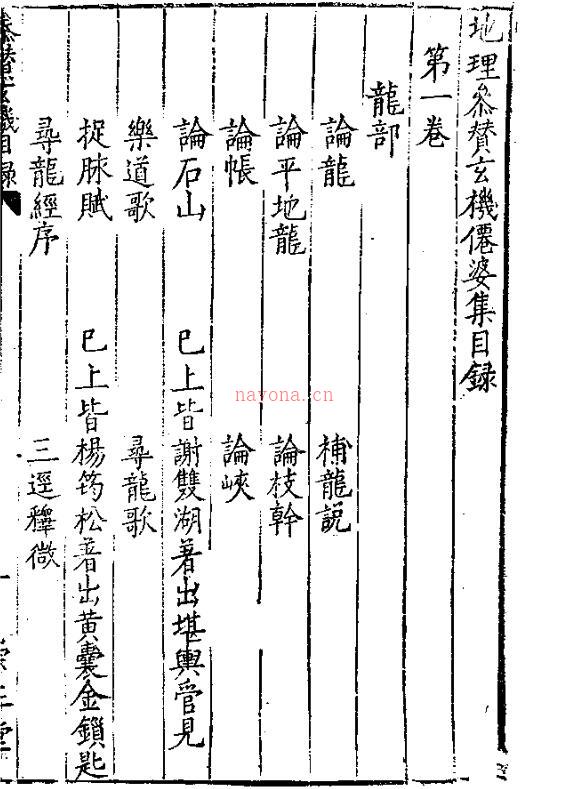 地理叅賛玄機僊婆集目録
第一卷
龍部
論龍
補龍説
論平地龍
論枝幹
論帳
論峽
論石山
已上皆謝雙湖著出堪輿管見
樂道歌
尋龍歌
捉脉賦
已上皆楊筠松著出黄囊金鎖匙
尋龍經序
三逕釋微
nayona.cn